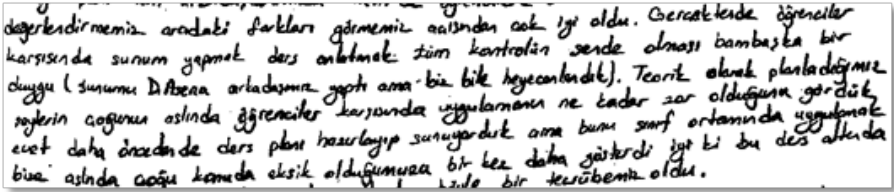 değerlendirmemiz aradaki farkları görmemiz açısından çok iyi oldu. Gerçektende öğrenciler
karşısında sunum yapmak ders anlatmak tüm kontrolün sende olması bambaşka bir
duygu (sunumu D.Asena arkadaşımız yaptı ama biz bile heyecanlandık). Teorik olarak planladığımız
şeylerin çoğunun aslında öğrenciler karşısında uygulamanın ne kadar zor olduğunu gördük
evet daha öncedende ders planı hazırlayıp sunuyorduk ama bunu sınıf ortamında uygulamak
bize aslında çoğu konuda eksik olduğumuzu bir kez daha gösterdi iyi ki bu ders altında
bir tecrübemiz oldu.